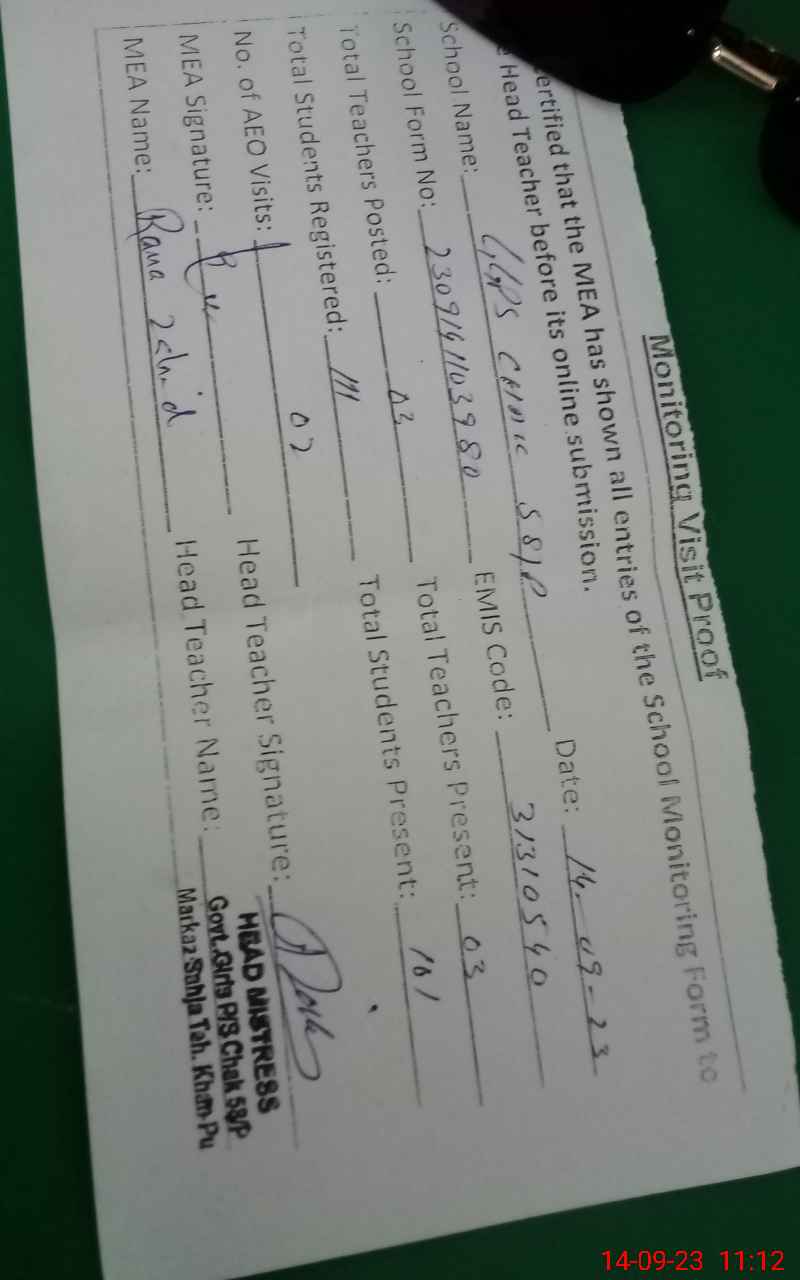 Monitoring Visit Proof
ertified that the MEA has shown all entries of the School Monitoring Form to
e Head Teacher before its online submission.
Date: 14-09-23
School Name: GGPS CHAK 58/P
School Form No: 2309141103980 EMIS Code: 31310540
Total Teachers Posted: 03 Total Teachers Present: 03
Total Students Registered: 111 Total Students Present: 101
No. of AEO Visits: 02
MEA Signature: Head Teacher Signature:
MEA Name: Rana Head Teacher Name:
HEAD MISTRESS
Govt.Girls P/S Chak 58/P
Markaz Sahja Teh. Khan Pu
14-09-23 11:12